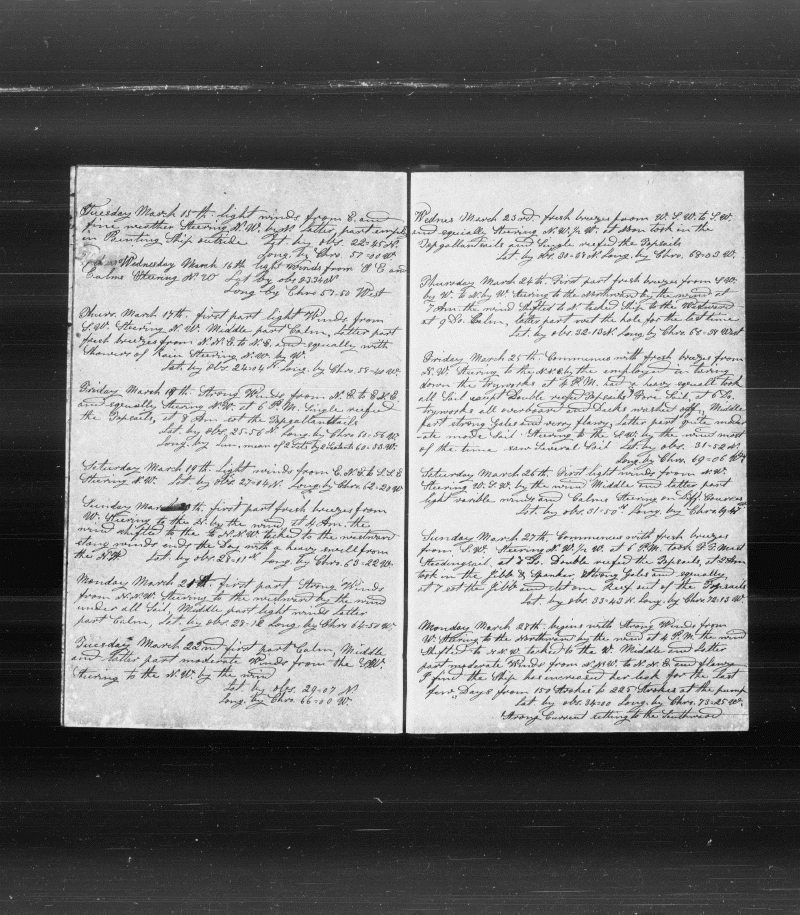 Tuesday March 15th light winds from E. and
fine weather Steering N.W. by N. Latter part employed
in Painting Ship outside Lat by obs. 22-45 N.
Long. by Chro. 57-00 W
Wednesday March 16th light winds from S E and
Calms Steering N.W Lat by obs 23.34 N
Long by Chro 57-50 West
Thurs. March 17th. first part light Winds from
S.W. Steering N.W. Middle part Calm, Latter part
fresh breezes from N.N.E. to N.E. and squally with
Showers of Rain Steering N.W. by W.
Lat. by obs. 24-04 N. Long. by Chro. 58-40 W.
Friday March 18th Strong Winds from N.E. to E.N.E.
and squally Steering N.W. at 6 P.M. Single reefed
the Topsails, at 8 Am. set the Topgallantsails
Lat. by obs. 25-56 N. Long. by Chro. 60-56 W.
Long. by Lun. mean of 2 Sets by 2 Sextants 60-33 W.
Saturday March 19th. Light winds from E.N.E. to S.S.E
Steering N.W. Lat by obs 27-04 N. Long. by Chro. 62-20 W
Sunday March 20th. first part fresh breezes from
W. Steering to the N. by the wind, at 4 Am. the
wind shifted to the N.N.W. tacked to the westward
strong winds ends the Day with a heavy swell from
the N.W. Lat. by obs. 28-11 N Long. by Chro. 63-22 W.
Monday March 21st first part Strong Winds
from N.N.W. Steering to the westward by the wind
under all Sail, Middle part light winds Latter
part Calm, Lat. by obs. 28- Long by Chro 64-50 W.
Tuesday March 22nd first part Calm, Middle
and latter part moderate Winds from the S.W.
Steering to the N.W. by the wind
Lat by obs. 29-07 N
Long. by Chro. 66-00 W.
Wednes March 23rd. fresh breezes from W.S.W. to S.W.
and squally Steering N.W. 1/2 W. at Noon took in the
Topgallantsails and Single reefed the Topsails
Lat by obs. 30-58 N. Long by Chro. 68-03 W.
Thursday March 24th. First part fresh breezes from S.W.
by W. to N. by W. Steering to the Northward by the wind at
7 Am. the wind shifted to N. tacked Ship to the Westward
at 9 Do. Calm, latter part wet the hold for the last time
Lat. by obs. 32-13 N. Long by Chro. 68-34 West
Friday March 25th. Commences with fresh breezes from
N.W. Steering to the N.N.E by the employed in taking
down the tryworks at 4 P.M. had a heavy squall took
all Sail except Double reefed Topsails & Fore Sail, at 6 Do.
tryworks all overboard and Decks washed off, Middle
part strong Gales and very flawy, Latter part quite moder
ate made Sail Steering to the S.W. by the wind most
of the time saw Several Sail Lat by obs. 31-52 N.
Long by Chro. 69-06 W
Saturday March 26th. First light winds from N.W.
Steering W.S.W. by the wind Middle and latter part
light variable winds and Calms Steering on Diff. Courses
Lat. by obs. 31-50 Long. by Chro. 69-45
Sunday March 27th. Commences with fresh breezes
from S.W. Steering N.W. 1/2 W. at 6 P.M. took F. T. Mast
Studdingsail, at 8 Do. Double reefed the Topsails, at 2 Am
took in the Jibb & Spanker, Strong Gales and squally,
at 7 set the Jibb and let one Reef out of the Topsails
Lat. by obs. 33-43 N. Long. by Chro. 72-13 W
Monday March 28th. begins with Strong Winds from
W. Steering to the Northward by the wind at 4 P.M. the wind
Shifted to N.N.W. tacked to the W. Middle and Latter
part moderate Winds from N.N.W. to N.N.E. and flawy
I find the Ship has increased her leak for the last
few Days from 150 Strokes to 225 Strokes at the pump
Lat. by obs. 34-00 Long. by Chro. 73-25 W.
Strong Current setting to the Southward